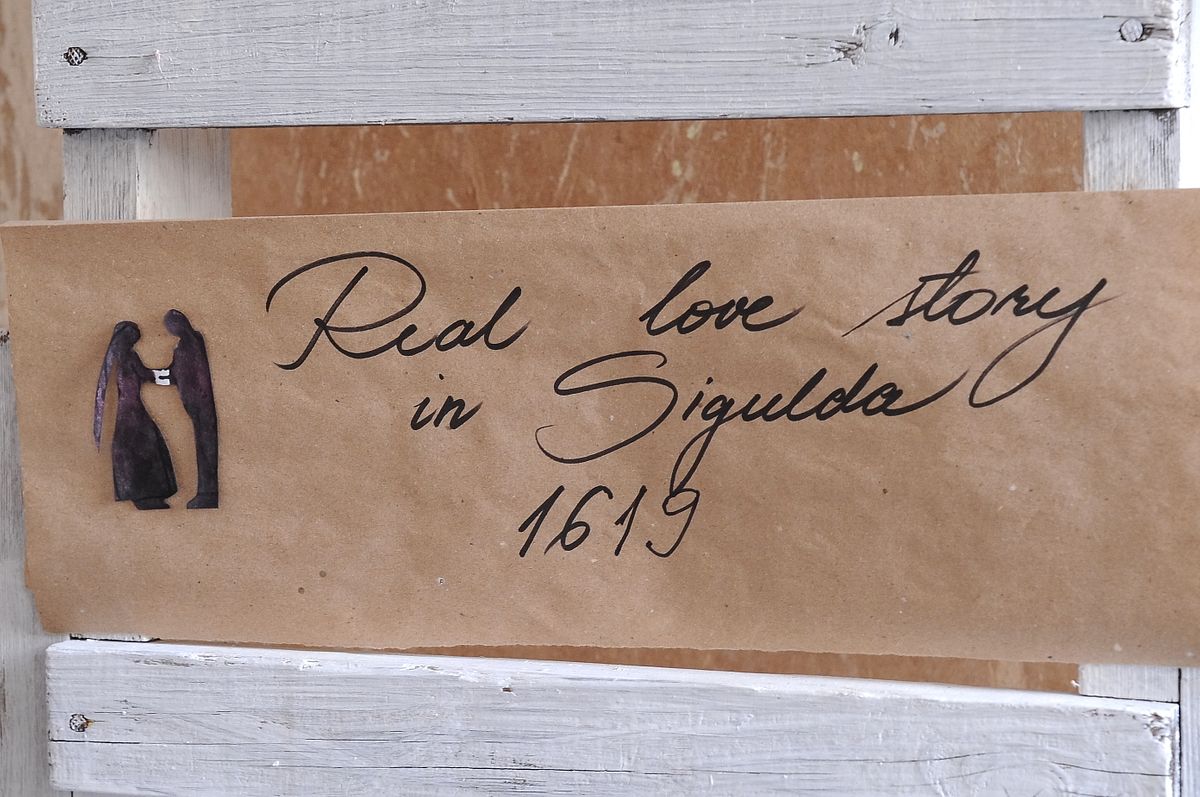 Real love story
in Sigulda
1619